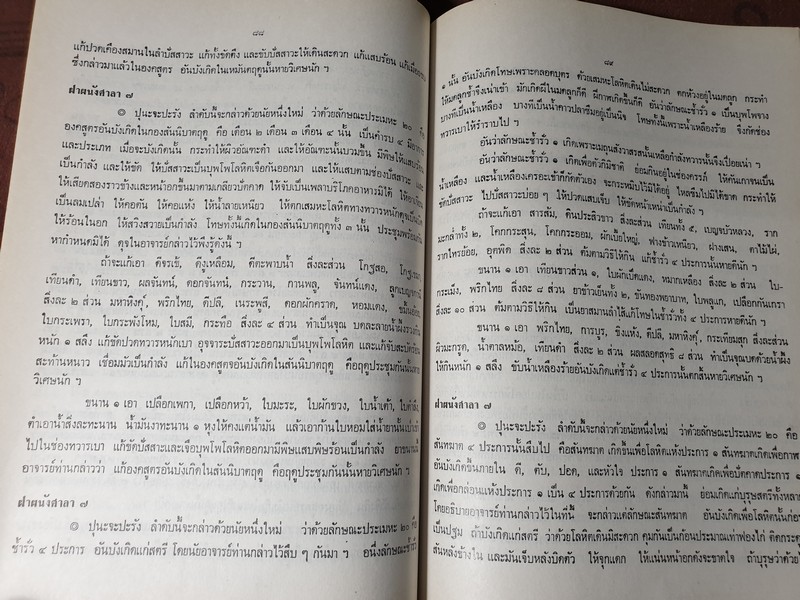 ๘๘
แก้ปวดเดือยสมานในลำปัสสาวะ แก้ทั้งขัดดึง และขับปัสสาวะให้เดินสะดวก แก้แสบร้อน
ซึ่งกล่าวมาแล้วในองคสูตร อันบังเกิดในเหมันตฤดูนั้นหายวิเศษนัก ฯ
ฝาผนังศาลา ๗
๏ ปุนะจะปะรัง ลำดับนี้จะกล่าวด้วยนัยหนึ่งใหม่ ว่าด้วยลักษณะประเมหะ ๒๐ คือ
องคสูตรอันบังเกิดในกองสันนิบาตฤดู คือ เดือน ๒ เดือน ๓ เดือน ๔ นั้น เป็นคำรบ ๔
และประเภท เมื่อจะบังเกิดนั้น กระทำให้ผิวอัณฑะดำ และให้อัณฑะนั้นบวมขึ้น มีพิษให้แสบร้อน
เป็นกำลัง และให้ขัด ให้ปัสสาวะเป็นบุพโพโลหิตเจือกันออกมา และให้แสบตามช่องปัสสาวะ และ
ให้เสียดสองราวข้างและหน้าอกขึ้นมาดามเกลียวปัตคาด ให้จับเป็นเพลาบริโภคอาหารมิได้
เป็นลมเปล่า ให้คอตัน ให้คอแห้ง ให้น้ำลายเหนียว ให้ตกเสมหะโลหิตทางทวารหนัก
ให้ร้อนในอก ให้สวิงสวายเป็นกำลัง โทษทั้งนี้เกิดในกองสันนิบาตฤดูทั้ง ๓ นั้น ประชุมพร้อมกัน
หากำหนดมิได้ ดุจในอาจารย์กล่าวไว้พึงรู้ดังนี้ ฯ
ถ้าจะแก้เอา ดีจรเข้, ดีงูเหลือม, ดีตะพาบน้ำ สิ่งละส่วน โกฐสอ,
เทียนดำ, เทียนขาว, ผลจันทน์, ดอกจันทน์, กระวาน, กานพลู, จันทน์แดง,
สิ่งละ ๒ ส่วน มหาหิงคุ์, พริกไทย, ดีปลี, เนระพูสี, ดอกผักคราด, หอมแดง,
ใบกระเพรา, ใบกระพังโหม, ใบสมี, กระทือ สิ่งละ ๔ ส่วน ทำเป็นจุณ บดละลายน้ำผึ้ง
หนัก ๑ สลึง แก้ขัดปัดทวารหนักเบา อุจจาระปัสสาวะออกมาเป็นบุพโพโลหิต และแก้จับสะบัดร้อน
สะท้านหนาว เชื่อมมัวเป็นกำลัง แก้ในองคสูตรอันบังเกิดในสันนิบาตฤดู คือฤดูประชุมกันนั้นหาย
วิเศษนัก ฯ
ขนาน ๑ เอา เปลือกเพกา, เปลือกหว้า, ใบมะระ, ใบผักขวง, ใบน้ำเต้า,
ตำเอาน้ำสิ่งละทะนาน น้ำมันงาทะนาน ๑ หุงให้คงแต่น้ำมัน แล้วเอาก้านใบหอมใส่น้ำยานั้นเป่าเข้า
ไปในช่องทวารเบา แก้ขัดปัสสาวะและเจ็บบุพโพโลหิตออกมามีพิษแสบพิษร้อนเป็นกำลัง
อาจารย์ท่านกล่าวว่า แก้องคสูตรอันบังเกิดในสันนิบาตฤดู คือฤดูประชุมกันนั้นหายวิเศษนัก ฯ
ฝาผนังศาลา ๗
๏ ปุนะจะปะรัง ลำดับนี้จะกล่าวด้วยนัยหนึ่งใหม่ ว่าด้วยลักษณะประเมหะ ๒๐ คือ
ช้ำรั่ว ๔ ประการ อันบังเกิดแก่สตรี โดยนัยอาจารย์ท่านกล่าวไว้สืบ ๆ กันมา ฯ อนึ่งลักษณะช้ำรั่ว
๘๙
๑ นั้น อันบังเกิดโทษเพราะคลอดบุตร ด้วยเสมหะโลหิตเดินไม่สะดวก ตกห้วงอยู่ในมดลูก กระทำ
ให้มดลูกช้ำจึงเน่าเข้า มักเกิดฝีในมดลูกก็ดี ฝีภาพเกิดขึ้นก็ดี อันว่าลักษณะช้ำรั่ว ๑ เป็นบุพโพจาง
บางทีเป็นน้ำเหลือง บางทีเป็นน้ำคาวปลาซึมอยู่เป็นนิจ โทษทั้งนี้เพราะน้ำเหลืองร้าย จึงกัดช่อง
ทวารเบาให้ร้าวรานไป ฯ
อันว่าลักษณะช้ำรั่ว ๑ เกิดเพราะเมถุนสังวาสรสนั้นเหลือกำลังทวารนั้นจึงเปื่อยเน่า ฯ
อันว่าลักษณะช้ำรั่ว ๑ เกิดเพื่อตัวภิมิชาติ ย่อมกินอยู่ในช่องครรภ์ ให้คันเกาจนเป็น
น้ำเหลือง และน้ำเหลืองเครอะเข้าก็กัดตัวเอง จะกระหมิบไว้มิได้อยู่ ไหลซึมไปมิได้ขาด กระทำให้
ขัดปัสสาวะ ไปปัสสาวะบ่อยๆ ให้ปวดแสบเจ็บ ให้ขัดหน้าเหน่าเป็นกำลัง ฯ
ถ้าจะแก้เอา สารส้ม, ดินประสิวขาว สิ่งละส่วน เทียนทั้ง ๕, เบญจบัวหลวง, ราก
มะกล่ำทั้ง ๒, โคกกระสุน, โคกกระออม, ผักเบี้ยใหญ่, ฟางข้าวเหนียว, ฝางเสน, ตาไม้ไผ่,
รากไทรย้อย, อุตพิด สิ่งละ ๒ ส่วน ต้มตามวิธีให้กิน แก้ช้ำรั่ว ๔ ประการนั้นหายดีนัก ฯ
ขนาน ๑ เอา เทียนขาวส่วน ๑, ใบผักเป็ดแดง, หมากเหลือง สิ่งละ ๒ ส่วน ใบ-
กระเม็ง, พริกไทย สิ่งละ ๘ ส่วน ยาข้าวเย็นทั้ง ๒, ขันทองพยาบาท, ใบพลูแก, เปลือกกันเกรา
สิ่งละ ๑๐ ส่วน ต้มตามวิธีให้กิน เป็นยาสมานลำไส้แก้โทษในช้ำรั่วทั้ง ๔ ประการหายดีนัก ฯ
ขนาน ๑ เอา พริกไทย, การบูร, ขิงแห้ง, ดีปลี, มหาหิงคุ์, กระเทียมสุก สิ่งละส่วน
ผิวมะกรูด, น้ำตาลหม้อ, เทียนดำ สิ่งละ ๒ ส่วน ผลสลอดสุทธิ ๘ ส่วน ทำเป็นจุณบดด้วยน้ำผึ้ง
ให้กินหนัก ๑ สลึง ขับน้ำเหลืองร้ายอันบังเกิดแต่ช้ำรั่ว ๔ ประการนั้นตกสิ้นหายวิเศษนัก ฯ
ฝาผนังศาลา ๗
๏ ปุนะจะปะรัง ลำดับนี้จะกล่าวด้วยนัยหนึ่งใหม่ ว่าด้วยลักษณะประเมหะ ๒๐ คือ
สันทฆาต ๔ ประการนั้นสืบไป คือสันทฆาต เกิดขึ้นเพื่อโลหิตแห้งประการ ๑ สันทฆาตเกิดเพื่อกาฬ
อันบังเกิดขึ้นภายใน ดี, ตับ, ปอด, และหัวใจ ประการ ๑ สันทฆาตเกิดเพื่อปัตคาดประการ ๑
เกิดเพื่อกล่อนแห้งประการ ๑ เป็น ๔ ประการด้วยกัน ดังกล่าวมานี้ ย่อมเกิดแก่บุรุษสตรีทั้งหลาย
โดยอธิบายอาจารย์กล่าวไว้ในที่นี้ จะกล่าวแต่ลักษณะสันทฆาต อันบังเกิดเพื่อโลหิตนั้นก่อน
เป็นปฐม ถ้าบังเกิดแก่สตรี ว่าด้วยโลหิตเดินมิสะดวก คุมกันเป็นก้อนประมาณเท่าฟองไก่ ติดกระดูก
สันหลังข้างใน และมันเจ็บหลังบิดตัว ให้จุกแดก ให้แน่นหน้าอกดังจะขาดใจ ถ้าบุรุษว่าด้วย